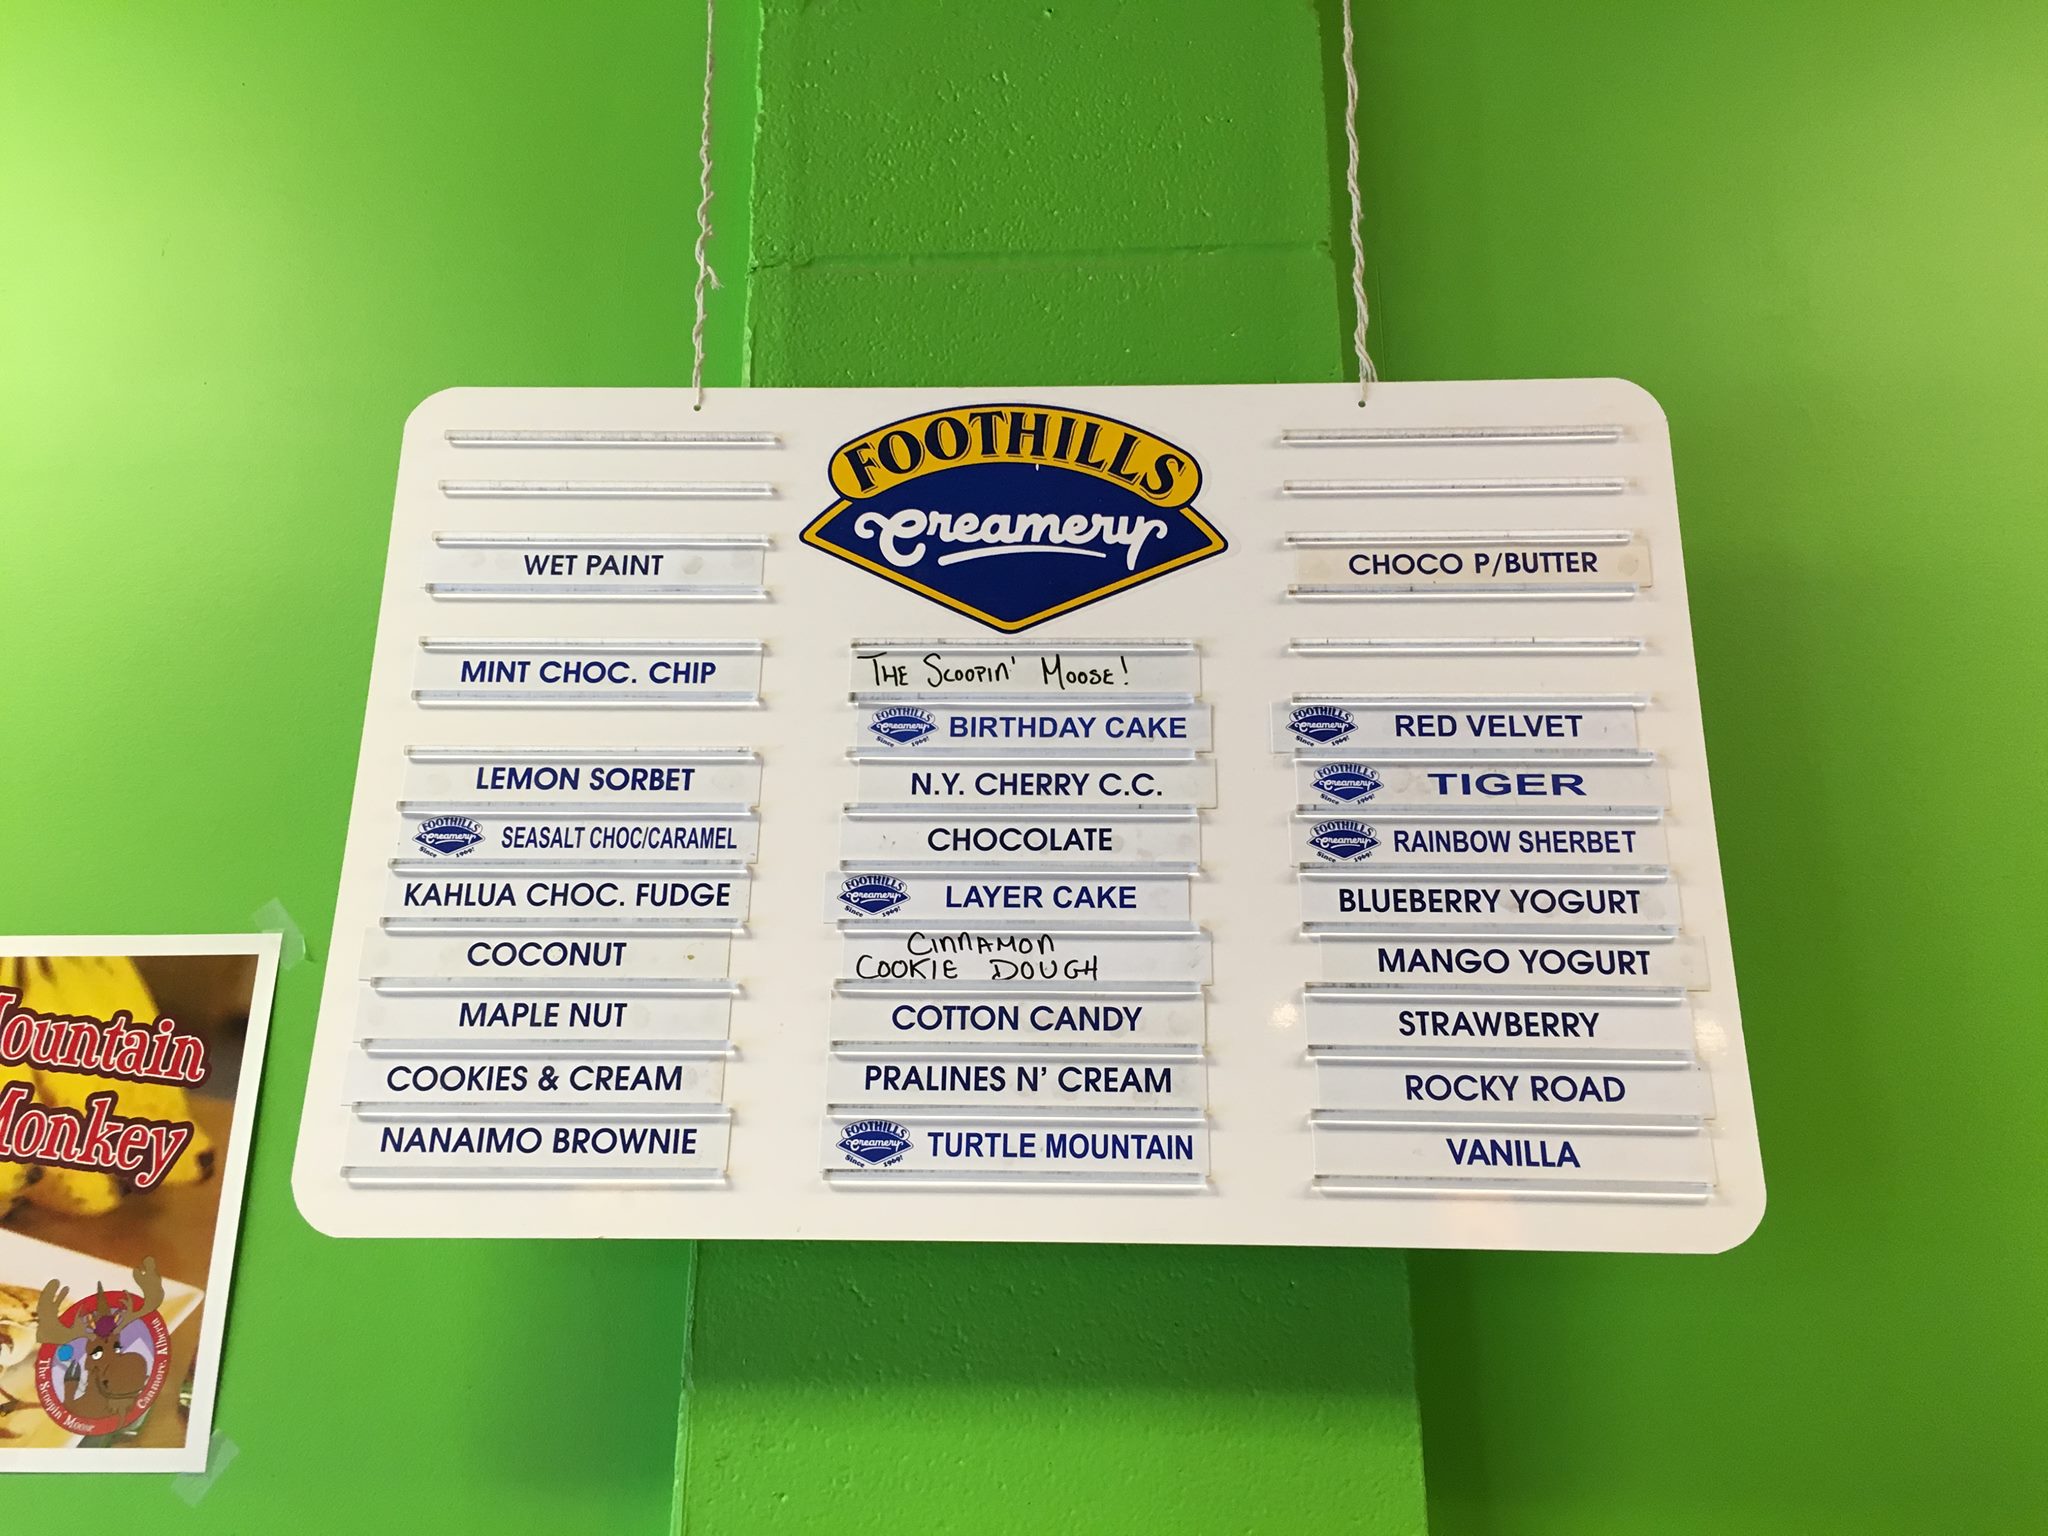 FOOTHILLS
Creamery
WET PAINT
MINT CHOC. CHIP
LEMON SORBET
FOOTHILLS Creamery Since 1969! SEASALT CHOC/CARAMEL
KAHLUA CHOC. FUDGE
COCONUT
MAPLE NUT
COOKIES & CREAM
NANAIMO BROWNIE
THE SCOOPIN' MOOSE!
FOOTHILLS Creamery Since 1969! BIRTHDAY CAKE
N.Y. CHERRY C.C.
CHOCOLATE
FOOTHILLS Creamery Since 1969! LAYER CAKE
CINNAMON
COOKIE DOUGH
COTTON CANDY
PRALINES N' CREAM
FOOTHILLS Creamery Since 1969! TURTLE MOUNTAIN
CHOCO P/BUTTER
FOOTHILLS Creamery Since 1969! RED VELVET
FOOTHILLS Creamery Since 1969! TIGER
FOOTHILLS Creamery Since 1969! RAINBOW SHERBET
BLUEBERRY YOGURT
MANGO YOGURT
STRAWBERRY
ROCKY ROAD
VANILLA
ountain
onkey
The Scoopin' Moose
Canmore, Alberta